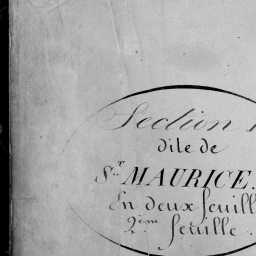 Section
dite de
St. MAURICE.
En deux feuill
2ème feuille.